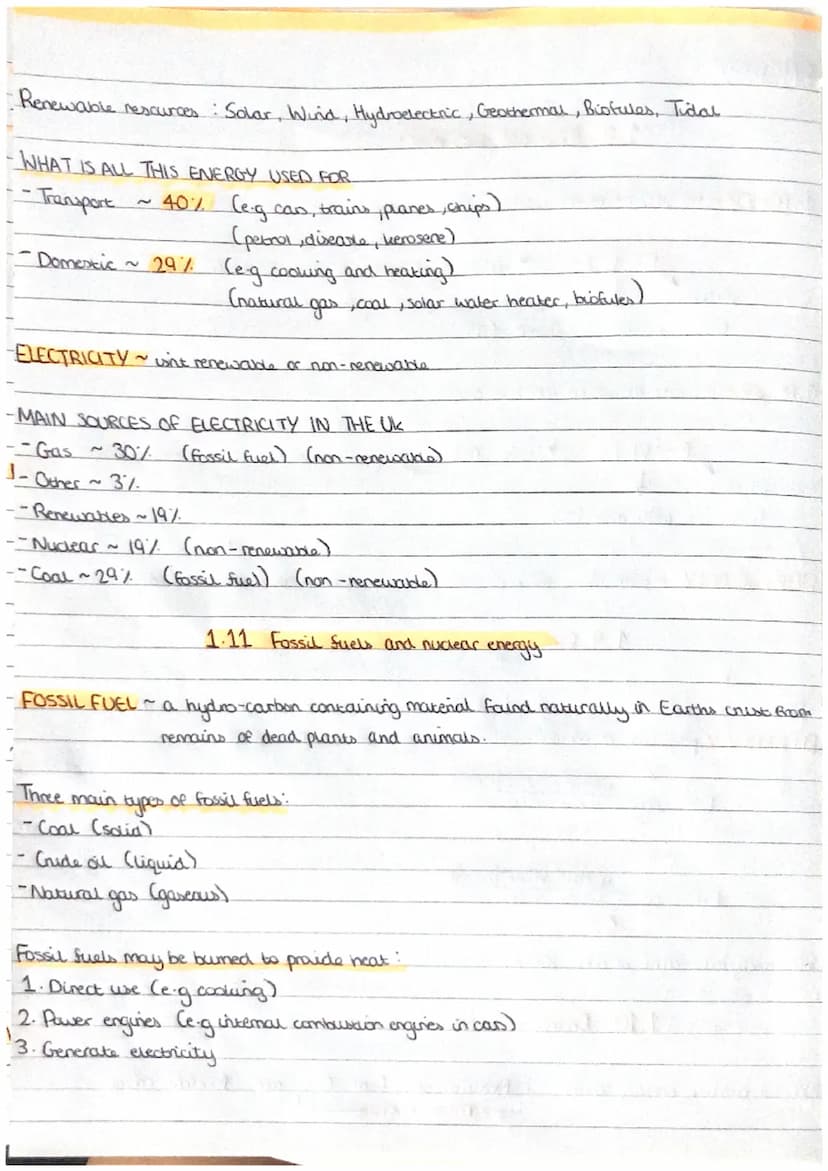 Renewable resources : Solar, Wind, Hydroelectric, Geothermal, Biofules, Tidal
WHAT IS ALL THIS ENERGY USED FOR
- Transport ~ 40% (e.g cars, trains, planes, ships)
(petrol, disease, kerosene)
- Domestic ~ 29% (e.g cooking and heating)
(natural gas, coal, solar water heater, biofules)
ELECTRICITY ~ isnt renewable or non-renewable
MAIN SOURCES OF ELECTRICITY IN THE UK
- Gas ~ 30% (fossil fuel) (non-renewable)
- Other ~ 3%
- Renewables ~ 19%
- Nuclear ~ 19% (non-renewable)
- Coal ~ 29% (fossil fuel) (non-renewable)
1.11 Fossil fuels and nuclear energy
FOSSIL FUEL ~ a hydro-carbon containing material found naturally in Earths crust from
remains of dead plants and animals.
Three main types of fossil fuels:
- Coal (solid)
- Crude oil (liquid)
- Natural gas (gaseous)
Fossil fuels may be burned to provide heat :
1. Direct use (e.g cooking)
2. Power engines (e.g internal combustion engines in cars)
3. Generate electricity